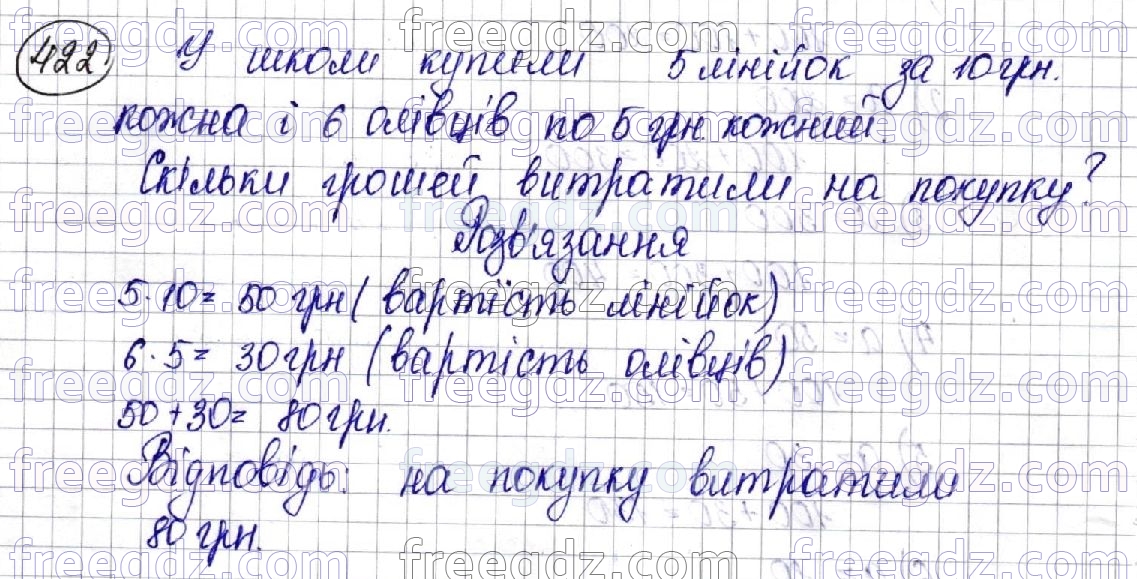 422 У школи купили 5 лінійок за 10 грн.
кожна і 6 олівців по 5 грн. кожний.
Скільки грошей витратили на покупку?
Розв'язання
5·10= 50 грн (вартість лінійок)
6·5= 30 грн (вартість олівців)
50+30= 80 грн.
Відповідь: на покупку витратили
80 грн.